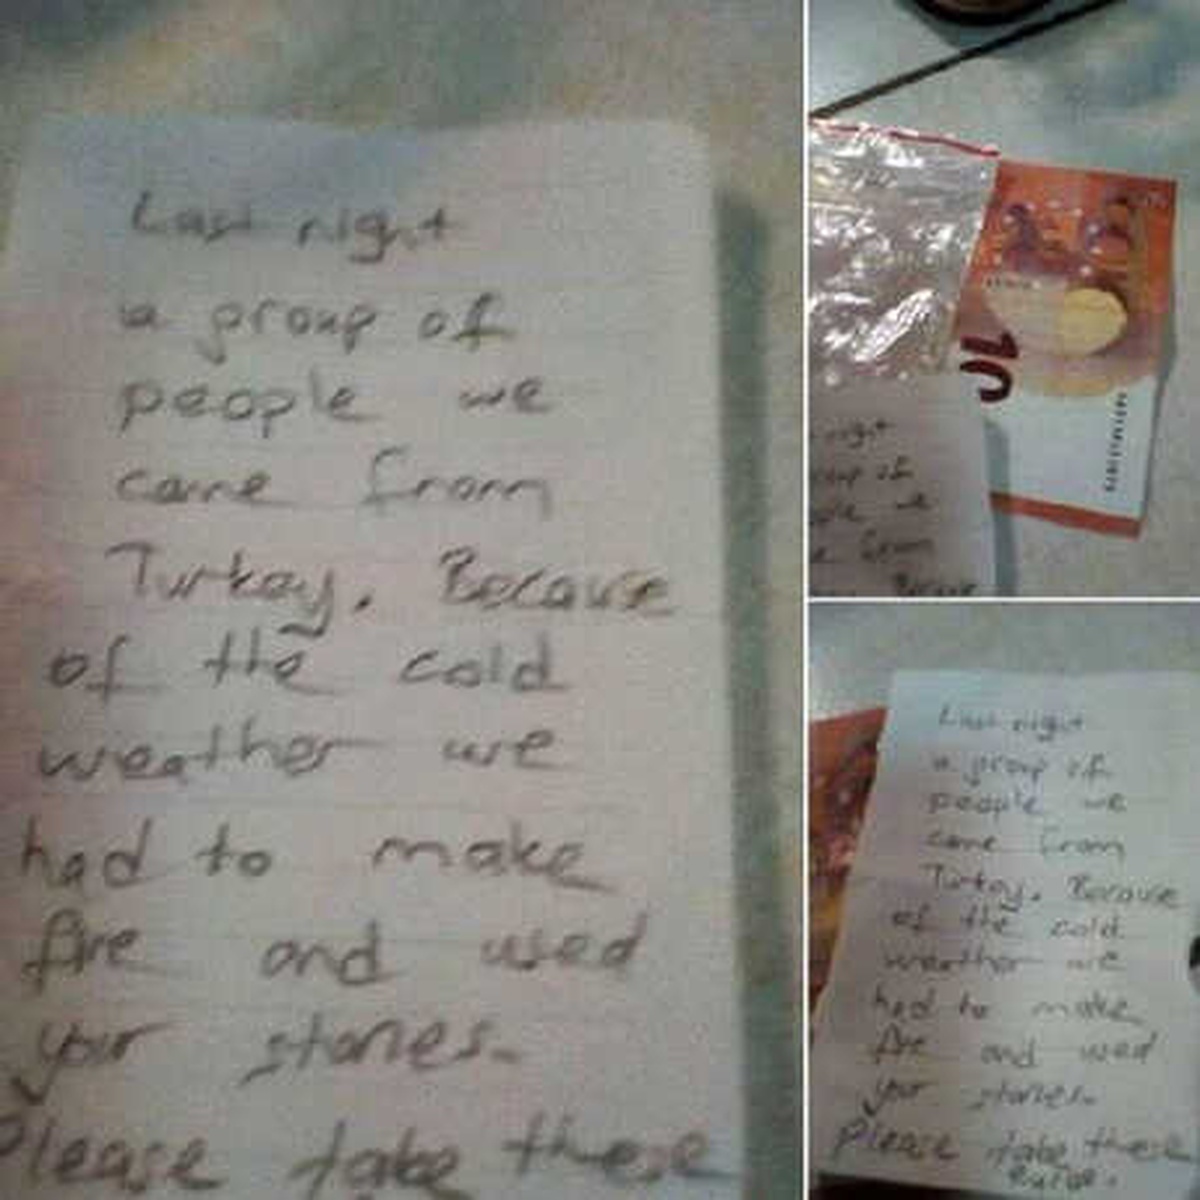 Last night
a group of
people we
came from
Turkey. Because
of the cold
weather we
had to make
fire and used
your stones.
Please take these
10
night
of
we
from
Because
Last night
a group of
people we
came from
Turkey. Because
of the cold
weather we
had to make
fire and used
your stones.
Please take these
Euros.